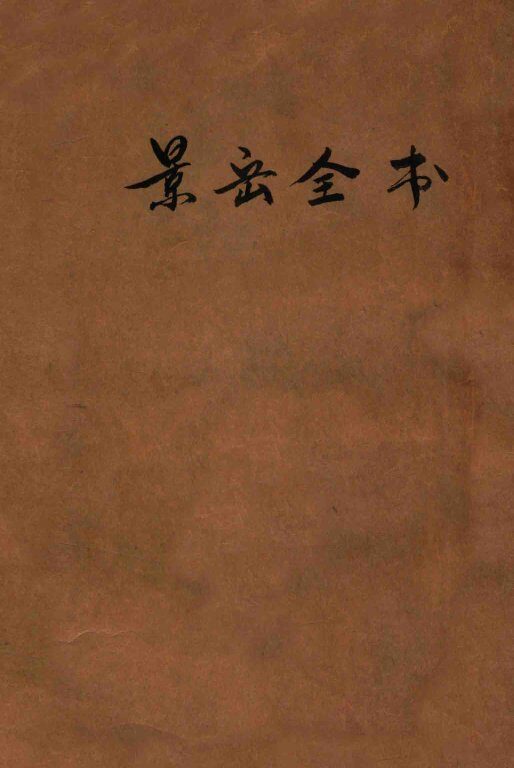 景岳全书